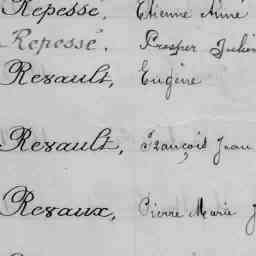 Repessé, Etienne Aimé
Repessé. Prosper Julien
Resault, Eugène
Resault, François Jean
Resaux, Pierre Marie J